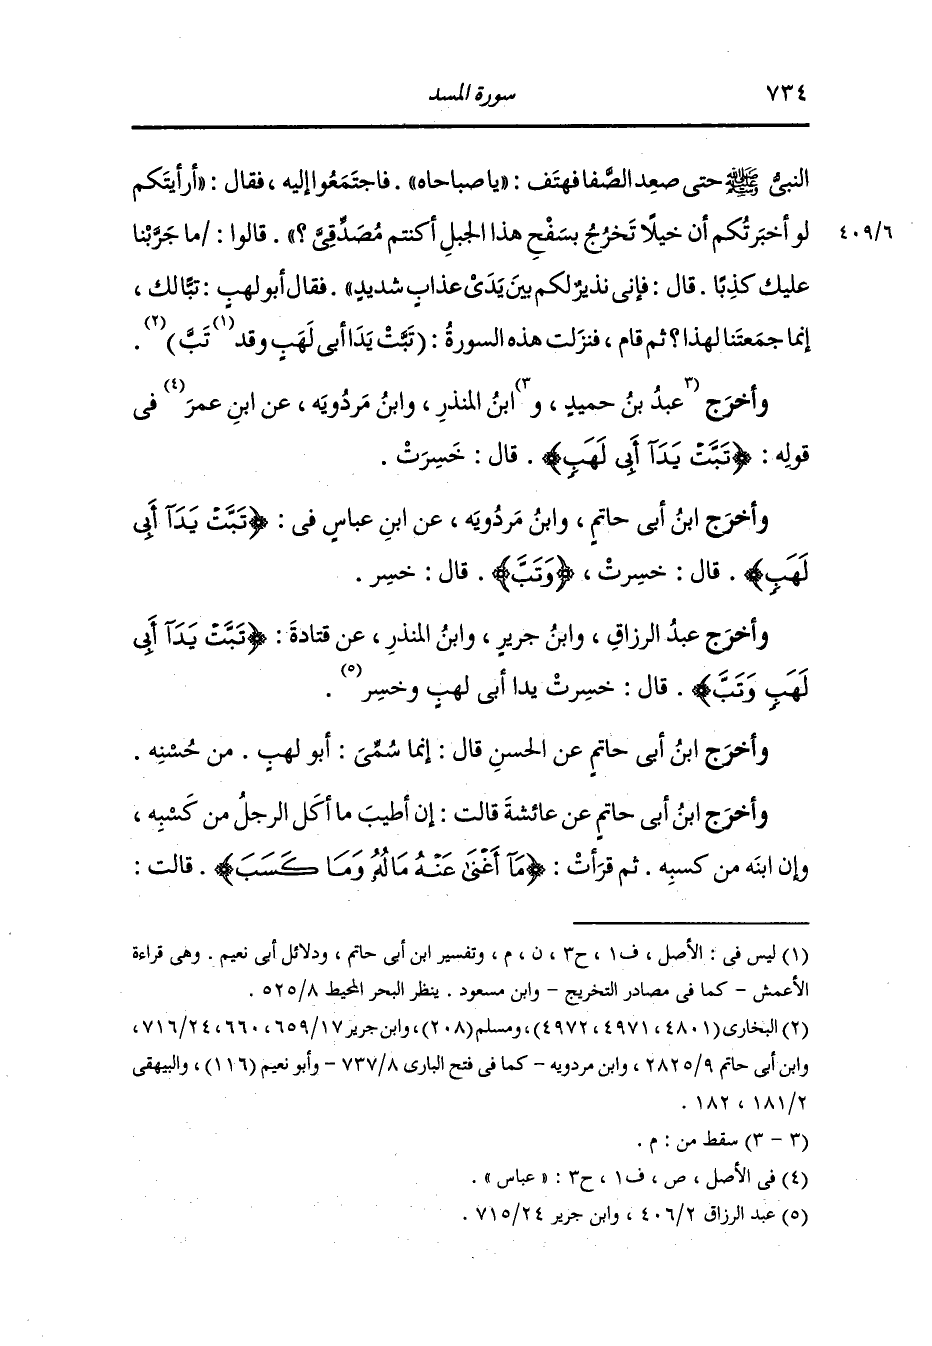 ٧٣٤ سورة المسد
النبىُّ ﷺ حتى صعِد الصَّفا فهتَف : «يا صباحاه» . فاجتَمَعُوا إليه ، فقال : «أرأيتَكم
٤٠٩/٦ لو أخبَرتُكم أن خيلًا تَخرُجُ بسَفْحِ هذا الجبلِ أكنتم مُصَدِّقِىَّ ؟» . قالوا : /ما جَرَّبْنا
عليك كذِبًا . قال : فإنى نذيرٌ لكم بينَ يَدَىْ عذابٍ شديدٍ» . فقال أبو لهبٍ : تبًّا لك ،
إنما جمَعتَنا لهذا ؟ ثم قام ، فنزَلت هذه السورةُ : (تَبَّتْ يَدَا أبى لَهَبٍ وقد(١) تَبَّ)(٢) .
وأخرَج (٣عبدُ بنُ حميدٍ ، و٣)ابنُ المنذرِ ، وابنُ مَردُويَه ، عن ابنِ عمرَ(٤) فى
قولِه : ﴿تَبَّتْ يَدَآ أَبِى لَهَبٍ﴾ . قال : خَسِرَتْ .
وأخرَج ابنُ أبى حاتمٍ ، وابنُ مَردُويَه ، عن ابنِ عباسٍ فى : ﴿تَبَّتْ يَدَآ أَبِى
لَهَبٍ﴾ . قال : خسِرتْ ، ﴿وَتَبَّ﴾ . قال : خسِر .
وأخرَج عبدُ الرزاقِ ، وابنُ جريرٍ ، وابنُ المنذرِ ، عن قتادةَ : ﴿تَبَّتْ يَدَآ أَبِى
لَهَبٍ وَتَبَّ﴾ . قال : خسِرتْ يدا أبى لهبٍ وخسِر(٥) .
وأخرَج ابنُ أبى حاتمٍ عن الحسنِ قال : إنما سُمِّىَ : أبو لهبٍ . من حُسْنِه .
وأخرَج ابنُ أبى حاتمٍ عن عائشةَ قالت : إن أطيبَ ما أكَل الرجلُ من كَسْبِه ،
وإن ابنَه من كسبِه . ثم قرَأتْ : ﴿مَآ أَغْنَىٰ عَنْهُ مَالُهُۥ وَمَا كَسَبَ﴾ . قالت :
(١) ليس فى : الأصل ، ف١ ، ح٣ ، ن ، م ، وتفسير ابن أبى حاتم ، ودلائل أبى نعيم . وهى قراءة
الأعمش – كما فى مصادر التخريج – وابن مسعود . ينظر البحر المحيط ٥٢٥/٨ .
(٢) البخارى (٤٨٠١ ، ٤٩٧١ ، ٤٩٧٢) ، ومسلم (٢٠٨) ، وابن جرير ٦٥٩/١٧ ، ٦٦٠ ، ٧١٦/٢٤ ،
وابن أبى حاتم ٢٨٢٥/٩ ، وابن مردويه – كما فى فتح البارى ٧٣٧/٨ – وأبو نعيم (١١٦) ، والبيهقى
١٨١/٢ ، ١٨٢ .
(٣ – ٣) سقط من : م .
(٤) فى الأصل ، ص ، ف١ ، ح٣ : « عباس » .
(٥) عبد الرزاق ٤٠٦/٢ ، وابن جرير ٧١٥/٢٤ .